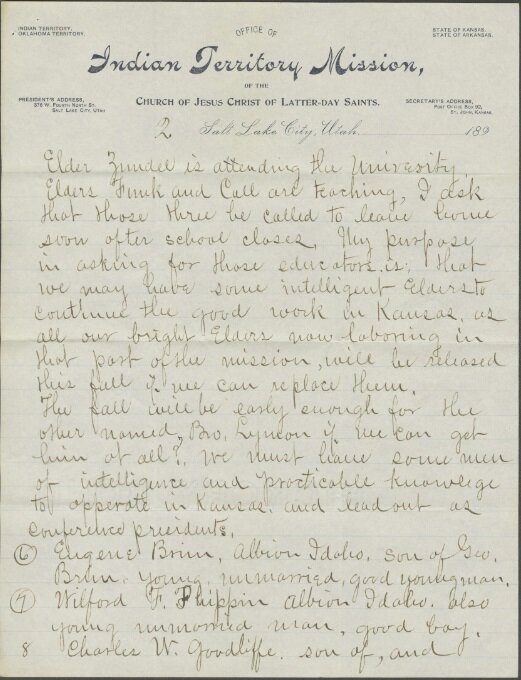 INDIAN TERRITORY,
OKLAHOMA TERRITORY.
OFFICE OF
STATE OF KANSAS.
STATE OF ARKANSAS.
Indian Territory Mission,
OF THE
CHURCH OF JESUS CHRIST OF LATTER-DAY SAINTS.
PRESIDENT'S ADDRESS,
376 W. FOURTH NORTH ST.
SALT LAKE CITY, UTAH
SECRETARY'S ADDRESS,
POST OFFICE BOX 92,
ST. JOHN, KANSAS.
2 Salt Lake City, Utah. 189
Elder Zundel is attending the University.
Elders Funk and Call are teaching, I ask
that those three be called to leave home
soon after school closes. My purpose
in asking for those educators is; that
we may have some intelligent Elders to
continue the good work in Kansas. as
all our bright Elders now laboring in
that part of the mission, will be released
this fall if we can replace them.
The fall will be early enough for the
other named, Bro. Lymon if we can get
him at all?. We must have some men
of intelligence and practicable knowlege
to opperate in Kansas. and lead out as
conference presidents.
6 Eugene Brim, Albion Idaho. son of Geo.
Brim. young, unmarried, good young man.
7 Wilford F. Phippin Albion Idaho. also
young unmarried man, good boy.
8 Charles W. Goodliffe. son of, and